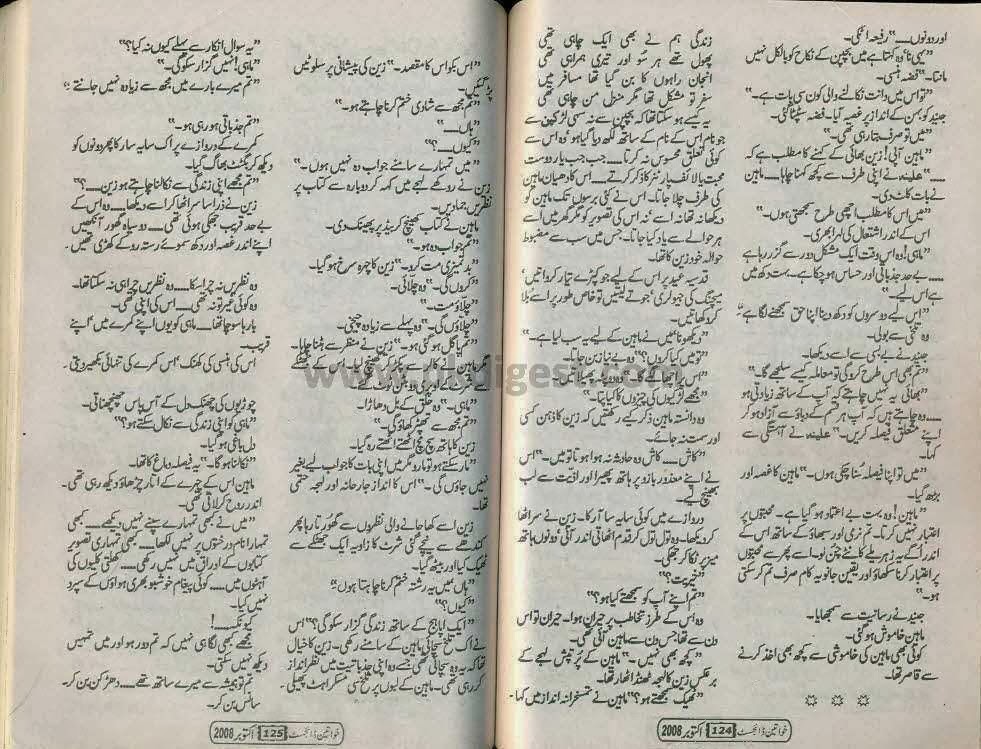 اور دونوں......" رفیعہ اٹکی۔
"یہی نا' وہ کہتا ہے میں بچپن کے نکاح کو بالکل نہیں
مانتا۔" فضہ ہنسی۔
"تو اس میں دانت نکالنے والی کون سی بات ہے۔"
جنید کو بہن کے انداز پر غصہ آیا۔ فضہ سٹپٹا گئی۔
"میں تو صرف بتا رہی تھی۔"
"ماہین آپی! زین بھائی کے کہنے کا مطلب ہے کہ
......" علینہ نے اپنی طرف سے کچھ کہنا چاہا...... ماہین
نے بات کاٹ دی۔
"میں اس کا مطلب اچھی طرح سمجھتی ہوں۔"
اس کے اندر اشتعال کی لہر ابھری۔
"ماہی! وہ اس وقت ایک مشکل دور سے گزر رہا ہے
...... بے حد جذباتی اور حساس ہو چکا ہے۔ بہت دکھ میں
ہے اس لیے۔"
"اس لیے دوسروں کو دکھ دینا اپنا حق سمجھنے لگا ہے۔"
وہ تلخی سے بولی۔
جنید نے بے بسی سے اسے دیکھا۔
"تم بھی اس طرح کرو گی تو معاملہ کیسے سلجھے گا۔"
"بھائی یہ میں چاہتے کہ آپ کے ساتھ زیادتی ہو
...... وہ چاہتے ہیں کہ آپ ہر قسم کے دباؤ سے آزاد ہو کر
اپنے متعلق فیصلہ کریں۔" علینہ نے آہستگی سے
کہا۔
"میں تو اپنا فیصلہ سنا چکی ہوں۔" ماہین کا غصہ اور
بڑھ گیا۔
"ماہین! وہ بہت بے اعتماد ہو گیا ہے۔ محبتوں پر
اعتبار نہیں کرتا۔ تم نرمی اور سبھاؤ کے ساتھ اس کے
اندر اگے یہ زہریلے کانٹے چن لو۔ اسے پھر سے محبتوں
پر اعتبار کرنا سکھاؤ اور یقین جانو یہ کام صرف تم کر سکتی
ہو۔"
جنید نے رسانیت سے سمجھایا۔
ماہین خاموش ہو گئی۔
کوئی بھی ماہین کی خاموشی سے کچھ بھی اخذ کرنے
سے قاصر تھا۔
زندگی ہم نے بھی ایک چاہی تھی
پھول تھے ہر سو اور تیری ہمراہی تھی
انجان راہوں کا بن گیا تھا مسافر میں
سفر تو مشکل تھا مگر منزل من چاہی تھی
یہ کیسے ہو سکتا تھا کہ بچپن سے نہ سہی لڑکپن سے
جو نام اس کے نام کے ساتھ لکھ دیا گیا ہو' وہ اس سے
کوئی تعلق محسوس نہ کرتا...... جب جب یار دوست
محبت یا لائف پارٹنر کا ذکر کرتے...... اس کا دھیان ماہین
کی طرف چلا جاتا۔ اس نے کئی برسوں تک ماہین کو
دیکھا نہ تھا نہ اسے' نہ اس کی تصویر کو مگر گھر میں اسے
ہر حوالے سے یاد کیا جاتا۔ جس میں سب سے مضبوط
حوالہ خود زین کا تھا۔
قدسیہ عید پر اس کے لیے جو کپڑے تیار کرواتیں'
میچنگ کی جیولری' جوتے لیتیں تو خاص طور پر اسے بلا
کر دکھاتیں۔
"دیکھو نا' میں نے ماہین کے لیے یہ سب لیا ہے۔"
"تو میں کیا کروں؟" وہ بے نیاز بن جاتا۔
"مجھے لڑکیوں کی چیزوں کا کیا پتا۔"
وہ دانستہ ماہین ذکر کیے رکھتیں کہ زین کا ذہن کسی
اور سمت نہ جائے۔
"کاش...... کاش وہ حادثہ نہ ہوا ہوتا تو میں۔" اس
نے اپنے معذور بازو پر ہاتھ پھیرا اور اذیت سے لب
بھینچ لیے۔
دروازے میں کوئی سایہ سا آ رکا۔ زین نے سر اٹھا
کر دیکھا۔ وہ تول تول کر قدم اٹھاتی اندر آئی' دونوں ہاتھ
میز پر ٹکا کر جھکی۔
"خیریت؟"
"تم اپنے آپ کو سمجھتے کیا ہو؟"
وہ اس کے طرز تخاطب پر حیران ہوا۔ حیران تو اس
دن سے تھا' جس دن سے ماہین آئی تھی۔
"کچھ بھی نہیں۔" ماہین کے پر تپش لہجے کے
بر عکس زین کا لہجہ ٹھنڈا ٹھار تھا۔
"ٹھیک سمجھتے ہو؟" ماہین نے تمسخرانہ انداز میں کہا۔
خواتین ڈائجسٹ 124 اکتوبر 2008
"اس بکواس کا مقصد۔" زین کی پیشانی پر سلوٹیں
پڑ گئیں۔
"تم مجھ سے شادی ختم کرنا چاہتے ہو۔"
"ہاں......"
"کیوں......؟"
"میں تمہارے سامنے جواب دہ نہیں ہوں۔"
زین نے روکھے لہجے میں کہہ کر دوبارہ سے کتاب پر
نظریں جما دیں۔
ماہین نے کتاب کھینچ کر بیڈ پر پھینک دی۔
"تم جواب دہ ہو۔"
"بد تمیزی مت کرو۔" زین کا چہرہ سرخ ہو گیا۔
"کروں گی۔" وہ چلائی۔
"چلاؤ مت۔"
"چلاؤں گی۔" وہ پہلے سے زیادہ چیخی۔
"تم پاگل ہو گئی ہو۔" زین نے منظر سے ہٹنا چاہا۔
"ماہی۔" وہ حلق کے بل دھاڑا۔
"تم مجھ سے تھپڑ کھاؤ گی۔"
زین کا ہاتھ سچ مچ اٹھتے اٹھتے رہ گیا۔
"مار سکتے ہو تو مارو مگر میں اپنی بات کا جواب لیے بغیر
نہیں جاؤں گی۔" اس کا انداز جارحانہ اور لہجہ حتمی
تھا۔
زین اسے کھا جانے والی نظروں سے گھورتا رہا پھر
کندھے سے نیچے گئی شرٹ کا زاویہ ایک جھٹکے سے
ٹھیک کیا اور بیٹھ گیا۔
"ہاں' میں یہ رشتہ ختم کرنا چاہتا ہوں۔"
"کیوں؟"
"ایک اپاہج کے ساتھ زندگی گزار سکو گی؟" اس
نے اک تلخ سچائی ماہین کے سامنے رکھی۔ زین کا خیال
تھا کہ یہ وہ سچائی تھی جسے وہ اپنی جذباتیت میں نظر انداز
کر رہی تھی۔ ماہین کے لبوں پر تلخ سی مسکراہٹ پھیلی۔
"یہ سوال انکار سے پہلے کیوں نہ کیا؟"
"ماہی! نہیں گزار سکو گی۔"
"تم میرے بارے میں مجھ سے زیادہ نہیں جانتے۔"
"تم جذباتی ہو رہی ہو۔"
کمرے کے دروازے پر اک سایہ سا رکا پھر دونوں کو
دیکھ کر بگٹٹ بھاگ گیا۔
"تم مجھے اپنی زندگی سے نکالنا چاہتے ہو زین......؟"
زین نے ذرا سا سر اٹھا کر اسے دیکھا...... وہ اس کے
بے حد قریب جھکی ہوئی تھی۔ دو سیاہ گھور آنکھیں
اپنے اندر غصہ اور دکھ سموئے رستہ روکے کھڑی تھیں۔
وہ نظریں نہ چرا سکا...... وہ نظریں چرا ہی نہ سکتا تھا۔
وہ کوئی غیر تو نہ تھی...... اس کی اپنی تھی۔
بارہا سوچا تھا...... ماہی کو یوں اپنے کمرے میں' اپنے
قریب۔
اس کی ہنسی کی کھنک' اس کمرے کی تنہائی بکھیر دیتی۔
چوڑیوں کی چھنک دل کے آس پاس چھنچھناتی۔
"ماہی کو اپنی زندگی سے نکال سکتے ہو؟"
دل باغی ہو گیا۔
"نکالنا ہو گا۔" یہ فیصلہ دماغ کا تھا۔
ماہین اس کے چہرے کے اتار چڑھاؤ دیکھ رہی تھی۔
اندر روح کرلاتی تھی۔
"میں نے بھی تمہارے سپنے نہیں دیکھے...... کبھی
تمہارا نام درختوں پر نہیں لکھا...... کبھی تمہاری تصویر
کتابوں کے اوراق میں نہیں رکھی...... کھلتی کلیوں کی
آہٹوں میں...... کوئی پیغام خوشبو بھری ہواؤں کے سپرد
نہیں کیا۔
کیونکہ......!
مجھے کبھی لگا ہی نہیں کہ تم دور ہو اور میں تمہیں
دیکھ نہیں سکتی۔
تم تو ہمیشہ سے میرے ساتھ تھے...... دھڑکن بن کر۔
سانس بن کر۔
خواتین ڈائجسٹ 125 اکتوبر 2008